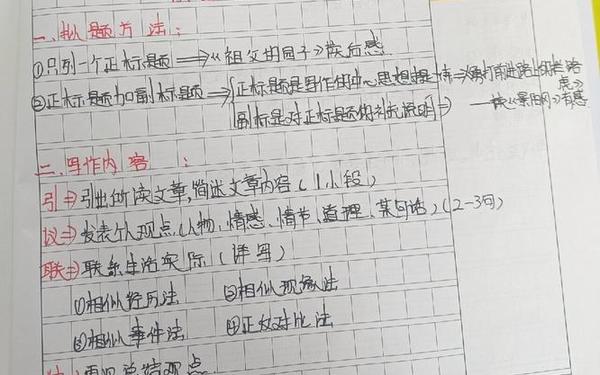 一、拟题方法：
①只列一个正标题⇒《祖父的园子》读后感
②正标题加副标题⇒{正标题是写作的中心思想提炼⇒《勇打前进路上的拦路虎》
副标是对正标题的补充说明⇒——读《景阳冈》有感
二、写作内容：
引⇒引出所读文章,简述文章内容(1小段)
议⇒发表个人观点(人物、情感、情节、道理、某句话)(2-3句)
联⇒联系生活实际(详写)
①相似经历法 ③相似现象法
②相似事件法 ④正反对比法
结：再次总结观点